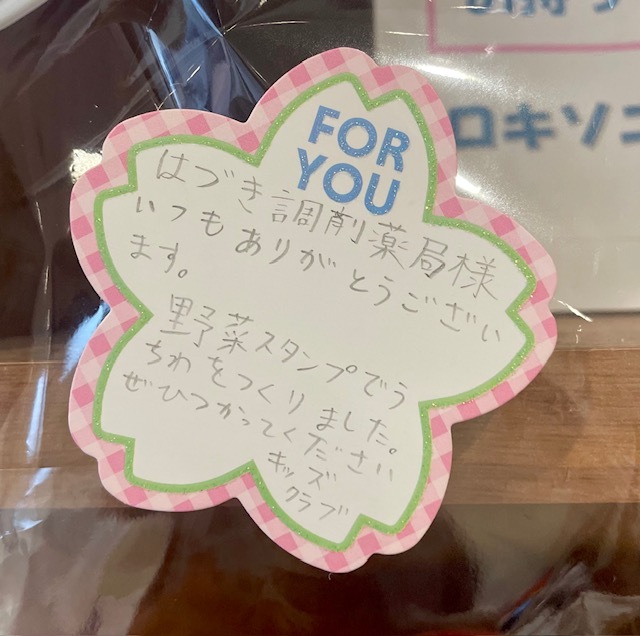 FOR
YOU
はづき調剤薬局様
いつもありがとうござい
ます。
野菜スタンプでう
ちわをつくりました。
ぜひつかってください
キッズ
クラブ
ロキソニ